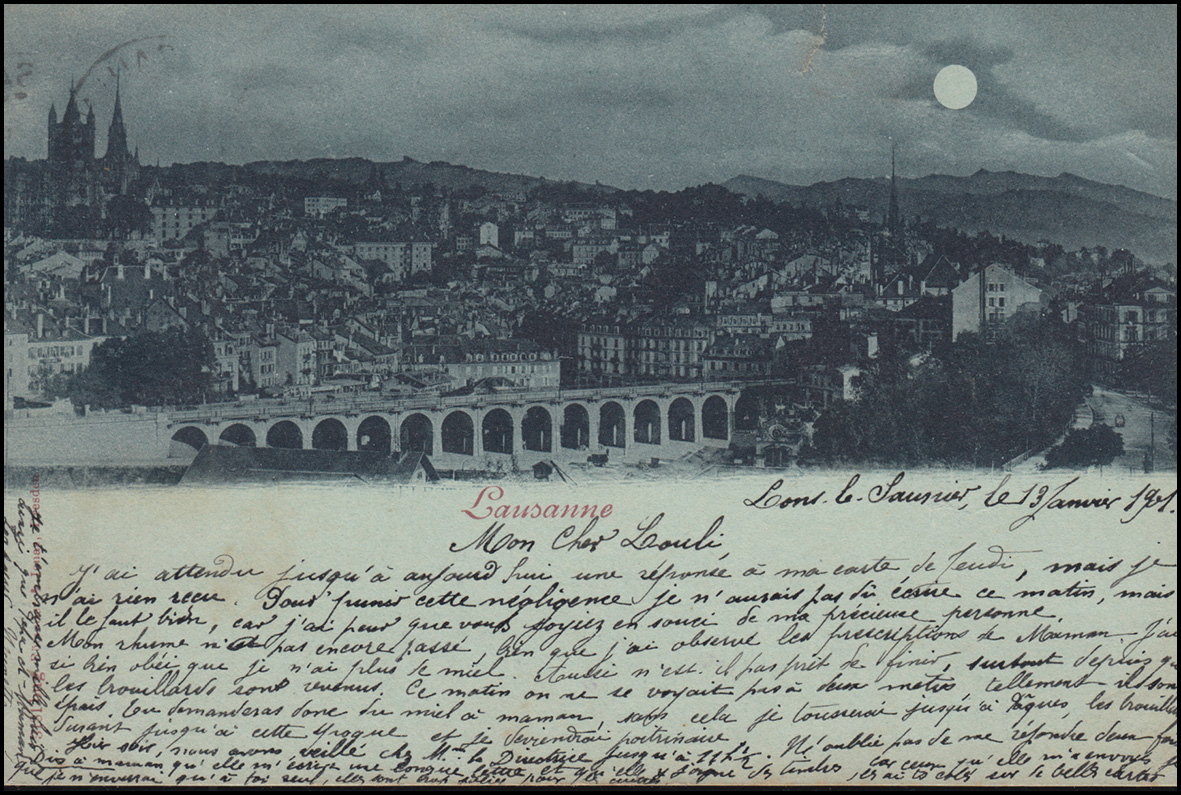 Lausanne
Lons-le-Saunier, le 13 Janvier 1901.
Mon Cher Louli,
J'ai attendu jusqu'à aujourd'hui une réponse à ma carte de Jeudi, mais je
n'ai rien reçu. Pour punir cette négligence je n'aurais pas dû écrire ce matin, mais
il le faut bien, car j'ai peur que vous soyez en souci de ma précieuse personne.
Mon rhume n'est pas encore passé, bien que j'ai observé les prescriptions de Maman. J'ai
si bien obéi que je n'ai plus de miel. Aussi n'est-il pas prêt de finir, surtout depuis que
les brouillards sont revenus. Ce matin on ne se voyait pas à deux mètres, tellement ils sont
épais. Tu demanderas donc du miel à maman, sans cela je tousserai jusqu'à Pâques, les brouillards
durant jusqu'à cette époque et je deviendrai poitrinaire
Hier soir, nous avons veillé chez Mme la Directrice jusqu'à 11h½. N'oublie pas de me répondre deux fois
Dis à maman qu'elle m'écrive une longue lettre et qu'elle des timbres car ceux qu'elle m'a envoyés
que je n'enverrai qu'à toi seul, sur les belles cartes